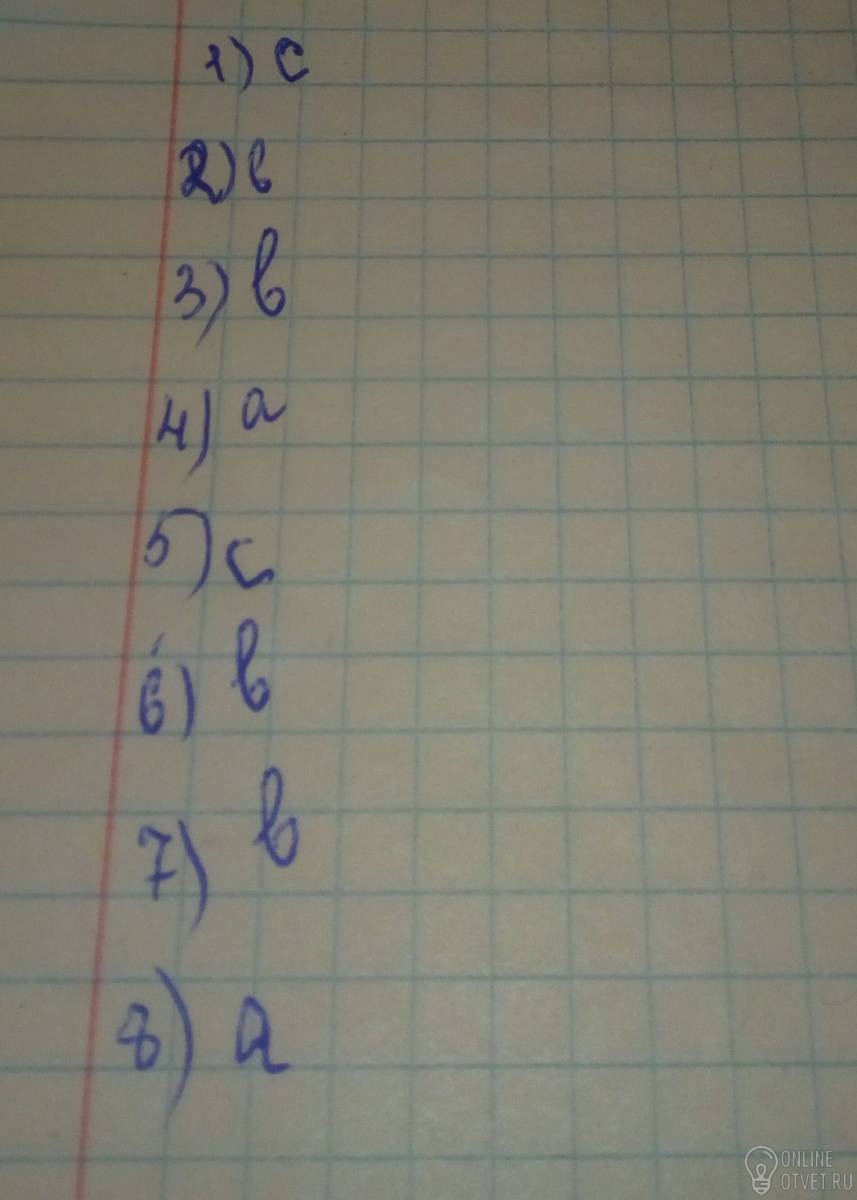 1) c
2) b
3) b
4) a
5) c
6) b
7) b
8) a
ONLINE
OTVET.RU